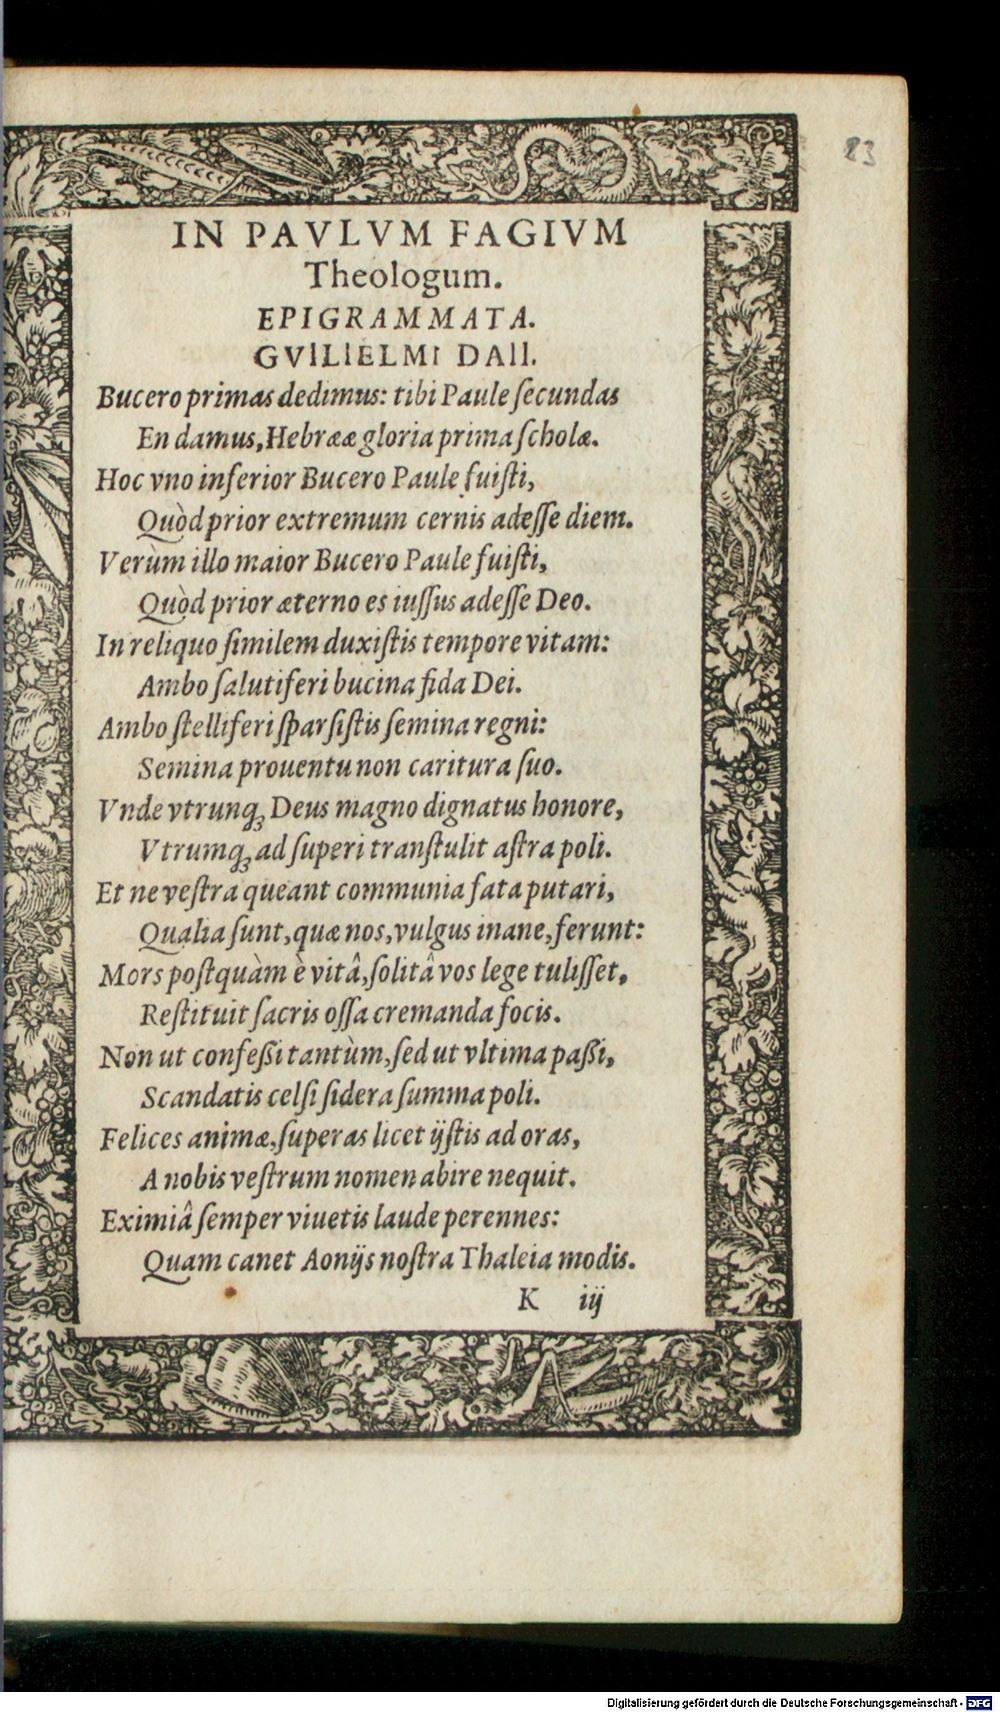 23
IN PAVLVM FAGIVM
Theologum.
EPIGRAMMATA.
GVILIELMI DALI.
Bucero primas dedimus: tibi Paule ſecundas
En damus, Hebrææ gloria prima ſcholæ.
Hoc vno inferior Bucero Paule fuiſti,
Quòd prior extremum cernis adeſſe diem.
Verùm illo maior Bucero Paule fuiſti,
Quòd prior æterno es iuſſus adeſſe Deo.
In reliquo ſimilem duxiſtis tempore vitam:
Ambo ſalutiferi bucina fida Dei.
Ambo ſtelliferi ſparſiſtis ſemina regni:
Semina prouentu non caritura ſuo.
Vnde vtrunq́ꝫ Deus magno dignatus honore,
Vtrumq́ꝫ ad ſuperi tranſtulit aſtra poli.
Et ne veſtra queant communia fata putari,
Qualia ſunt, quæ nos, vulgus inane, ferunt:
Mors poſtquàm è vitâ, ſolitâ vos lege tuliſſet,
Reſtituit ſacris oſſa cremanda focis.
Non ut confeßi tantùm, ſed ut vltima paßi,
Scandatis celſi ſidera ſumma poli.
Felices animæ, ſuperas licet ijſtis ad oras,
A nobis veſtrum nomen abire nequit.
Eximiâ ſemper viuetis laude perennes:
Quam canet Aonijs noſtra Thaleia modis.
K iij
Digitalisierung gefördert durch die Deutsche Forschungsgemeinschaft - DFG